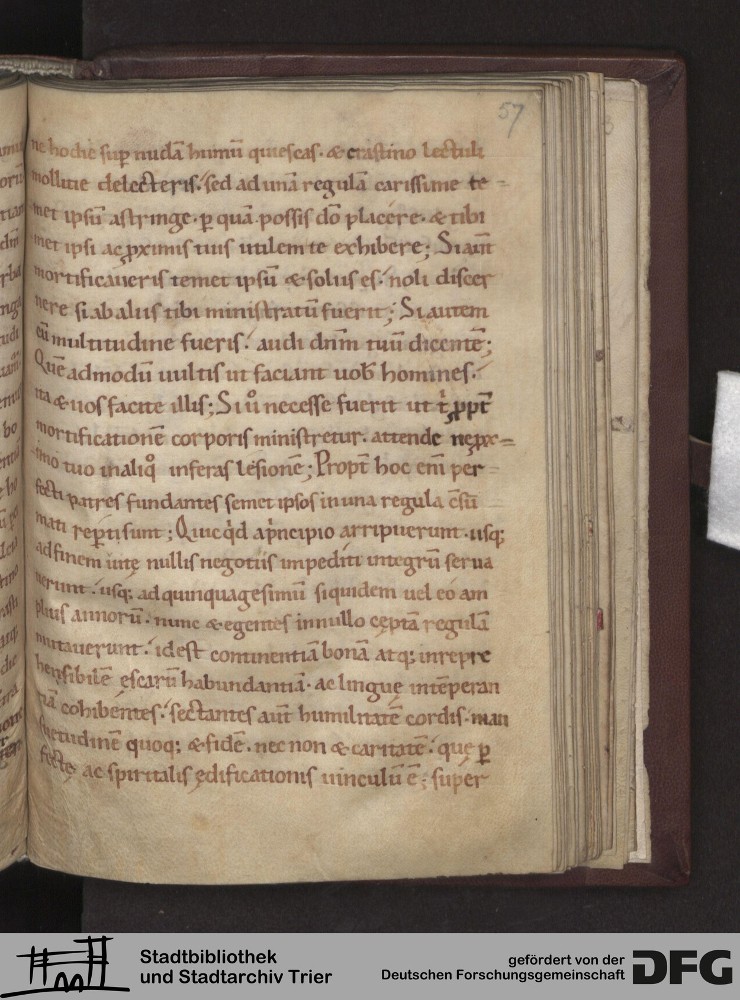 57
ne hodie sup nudā humū quiescas · & crastino lectuli
mollitie delecteris · sed ad unā regulā carissime te-
met ipsū astringe · ꝑ quā possis dō placere · & tibi
met ipsi ac ꝓximis tuis utilem te exhibere ; Si aūt
mortificaueris temet ipsū & solus es · noli discer
nere si ab aliis tibi ministratū fuerit ; Si autem
cū multitudine fueris · audi dn̄m tuū dicentē ;
Quēadmodū uultis ut faciant uob̄ homines ·
ita & uos facite illis ; Si ů necesse fuerit ut t̄ ꝓpt̄
mortificationē corporis ministretur · attende ne ꝓx-
imo tuo in aliq̊ inferas lęsionē ; Propt̄ hoc enī per-
fecti patres fundantes semet ipsos in una regula c̄sū
mati reꝑti sunt ; Quicq̇d a ṗncipio arripuerunt · usq;
ad finem uitę nullis negotiis impediti integrū serua
uerunt · usq; ad quinquagesimū siquidem uel eo am
plius annorū · nunc & egentes in nullo cęptā regulā
mutauerunt · id est continentiā bonā atq; inrepre
hensibilē ęscarū habundantiā · ac linguę intēperan
tiā cohibentes · sectantes aūt humilitatē cordis · man
suetudinē quoq; & fidē · nec non & caritatē · que ꝑ
fectę ac spiritalis ędificationis uinculū ē ; super
Stadtbibliothek
und Stadtarchiv Trier
gefördert von der
Deutschen Forschungsgemeinschaft
DFG